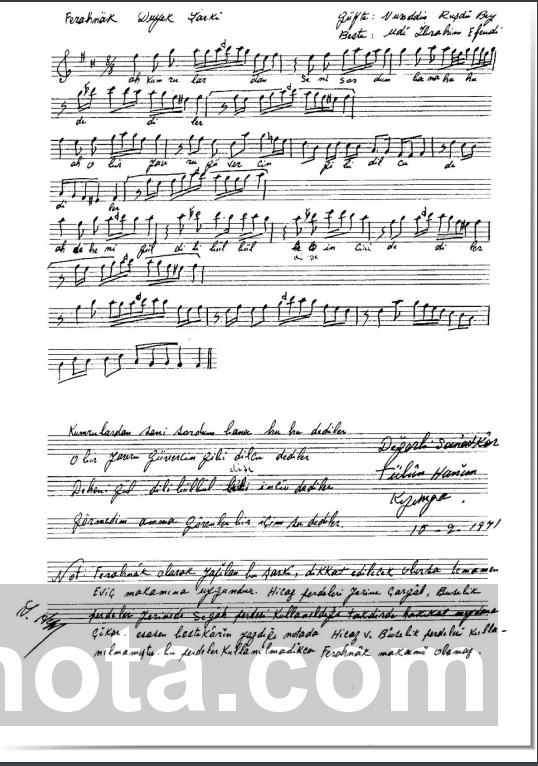 Ferahnâk Düyek Şarkı
Güfte : Nureddin Rüşdü Bey
Beste : Udi İbrahim Efendi
ah kum ru lar dan se ni sor dum ba na hu hu
de di ler
ah o bir yav ru gü ver cin gi bi dil cu de
di ler
ah de he ni gül di li bül bül in cisi de di ler
Kumrulardan seni sordum bana hu hu dediler
O bir yavru güvercin gibi dilcu dediler
Deheni gül dili bülbül dişi inciv dediler
Görmedim amma görenler bir içim su dediler
Değerli Sanatkâr
Tülûn Hanım
10-2-1971
Not: Ferahnâk olarak yazılan bu şarkı, dikkat edilecek olursa tamamen
Eviç makamına uygundur. Hicaz perdeleri yerine Çargâh, Buselik
perdeleri yerinede Segâh perdesi kullanıldığı takdirde hakikat meydana
Çıkar. esasen bestekârın yazdığı notada Hicaz v. Buselik perdeleri kulla-
nılmamıştır. bu perdeler kullanılmadıkca Ferahnâk makamı olamaz.
nota.com